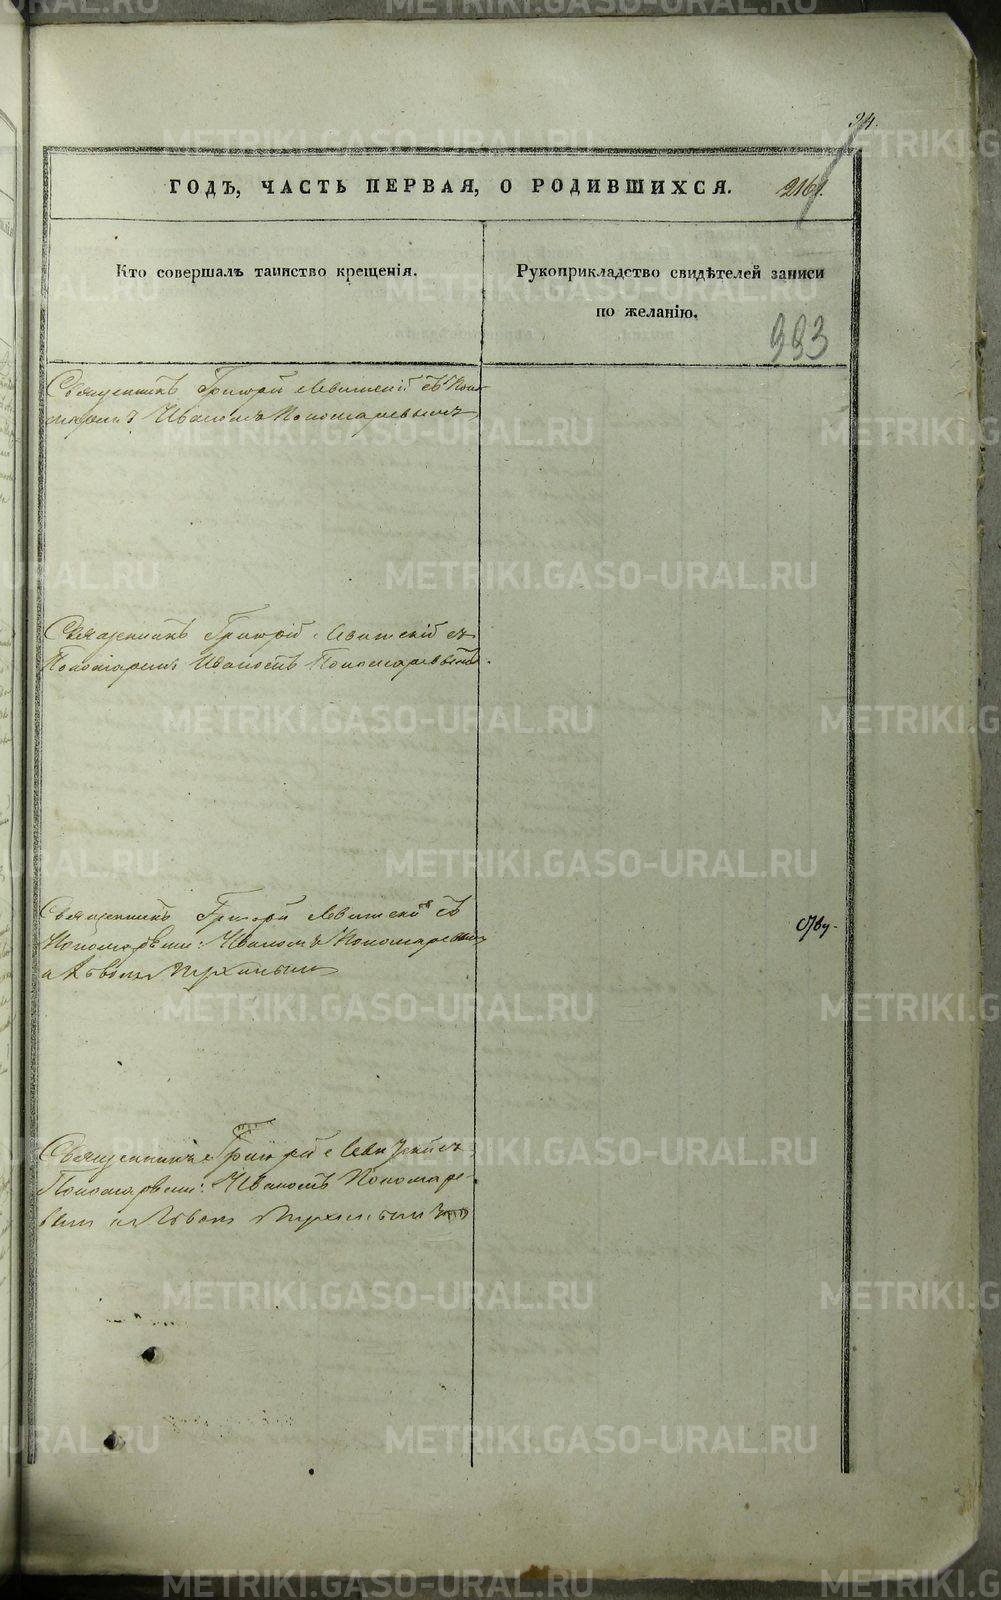 94.
ГОДЪ, ЧАСТЬ ПЕРВАЯ, О РОДИВШИХСЯ.
216
Кто совершалъ таинство крещенія.
Рукоприкладство свидѣтелей записи
по желанію.
993
Священникъ Григорій Левитскій съ Поно-
маремъ Иваномъ Пономаревымъ
Священникъ Григорій Левитскій съ
Пономаремъ Иваномъ Пономаревымъ.
Священникъ Григорій Левитскій съ
Пономарями: Иваномъ Пономаревымъ
и Львомъ
Священникъ Григорій Левитскій съ
Пономарями: Иваномъ Пономаре-
вымъ и Львомъ
METRIKI.GASO-URAL.RU